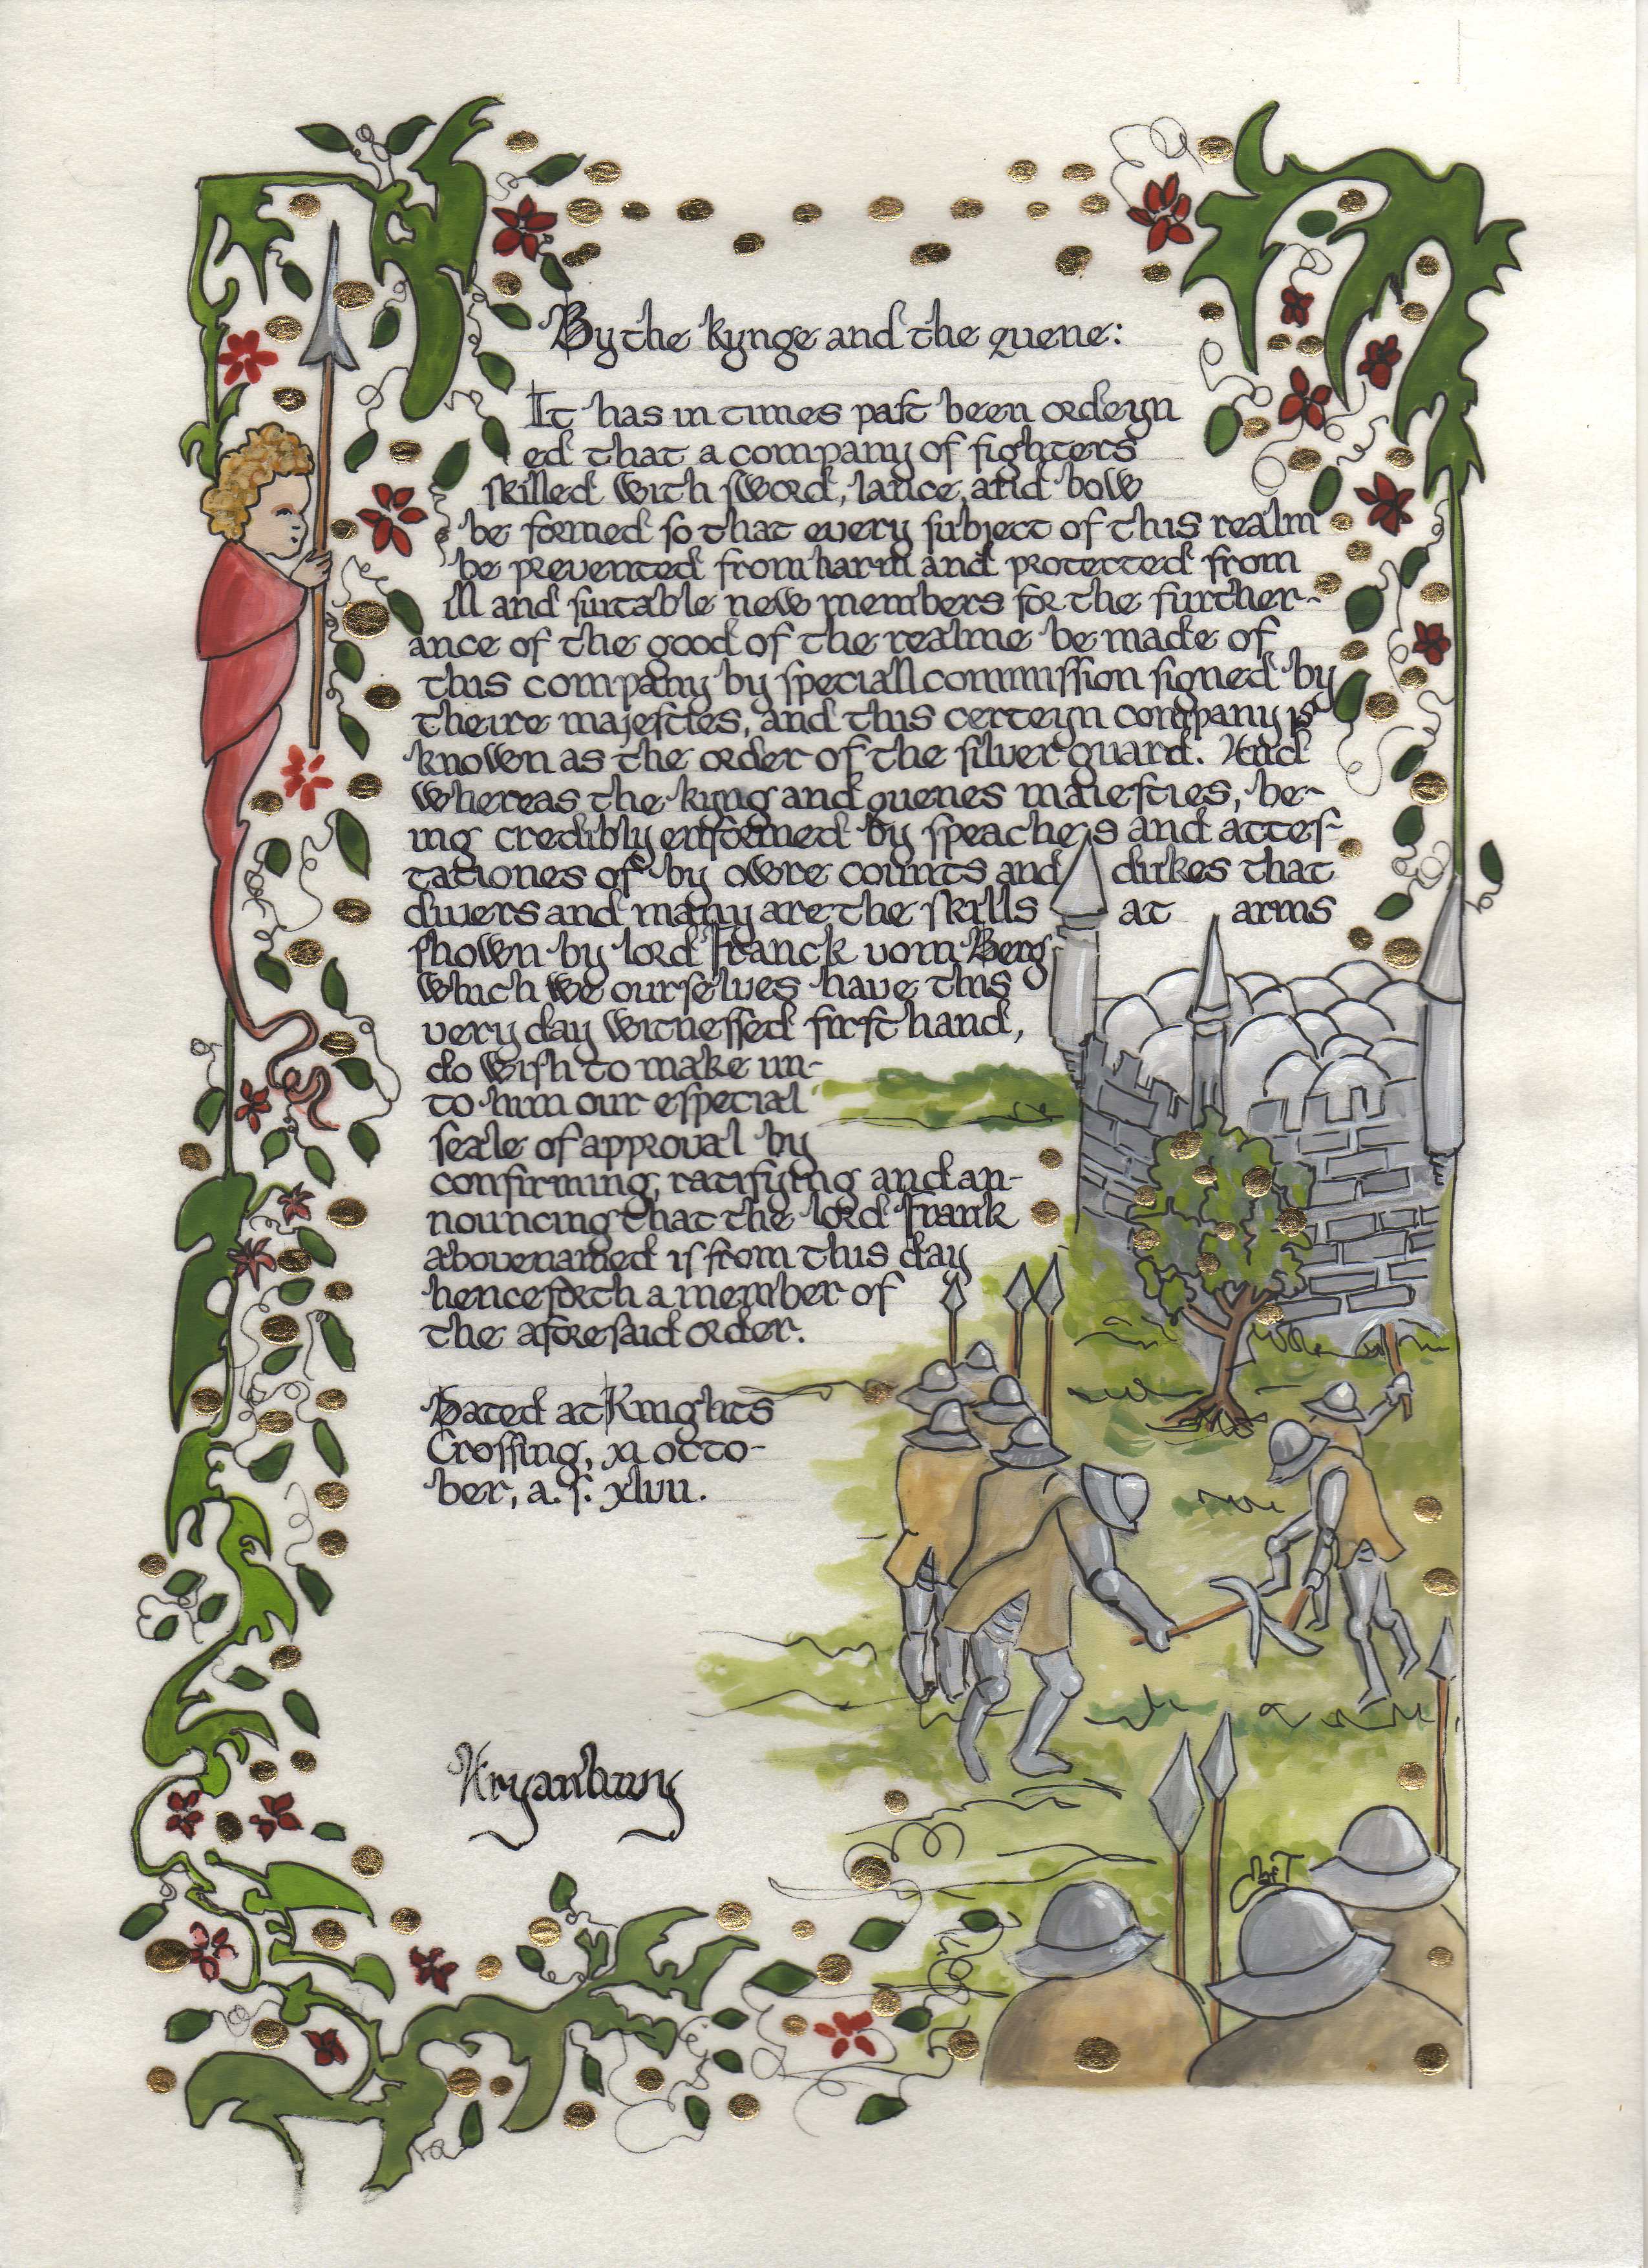 By the kynge and the quene:
It has in times past been ordeyn
ed that a company of fighters
skilled with sword, lance, and bow
be formed so that every subject of this realm
be prevented from harm and protected from
ill and suitable new members for the further-
ance of the good of the realme be made of
this company by speciall commission signed by
theire majesties, and this certeyn company is
known as the order of the silver guard. And
whereas the kyng and quenes maiesties, be-
ing credibly enformed by speaches and attes-
tationes of by owre counts and dukes that
divers and many are the skills at arms
shown by lord Franck vom Berg
which we ourselves have this
very day witnessed first hand,
do wish to make un-
to him our especial
seale of approval by
confirming, ratifying and an-
nouncing that the lord Frank
abovenamed is from this day
henceforth a member of
the aforesaid order.
Dated at Knights
Crossing, xi octo-
ber, a.s. xlvii.